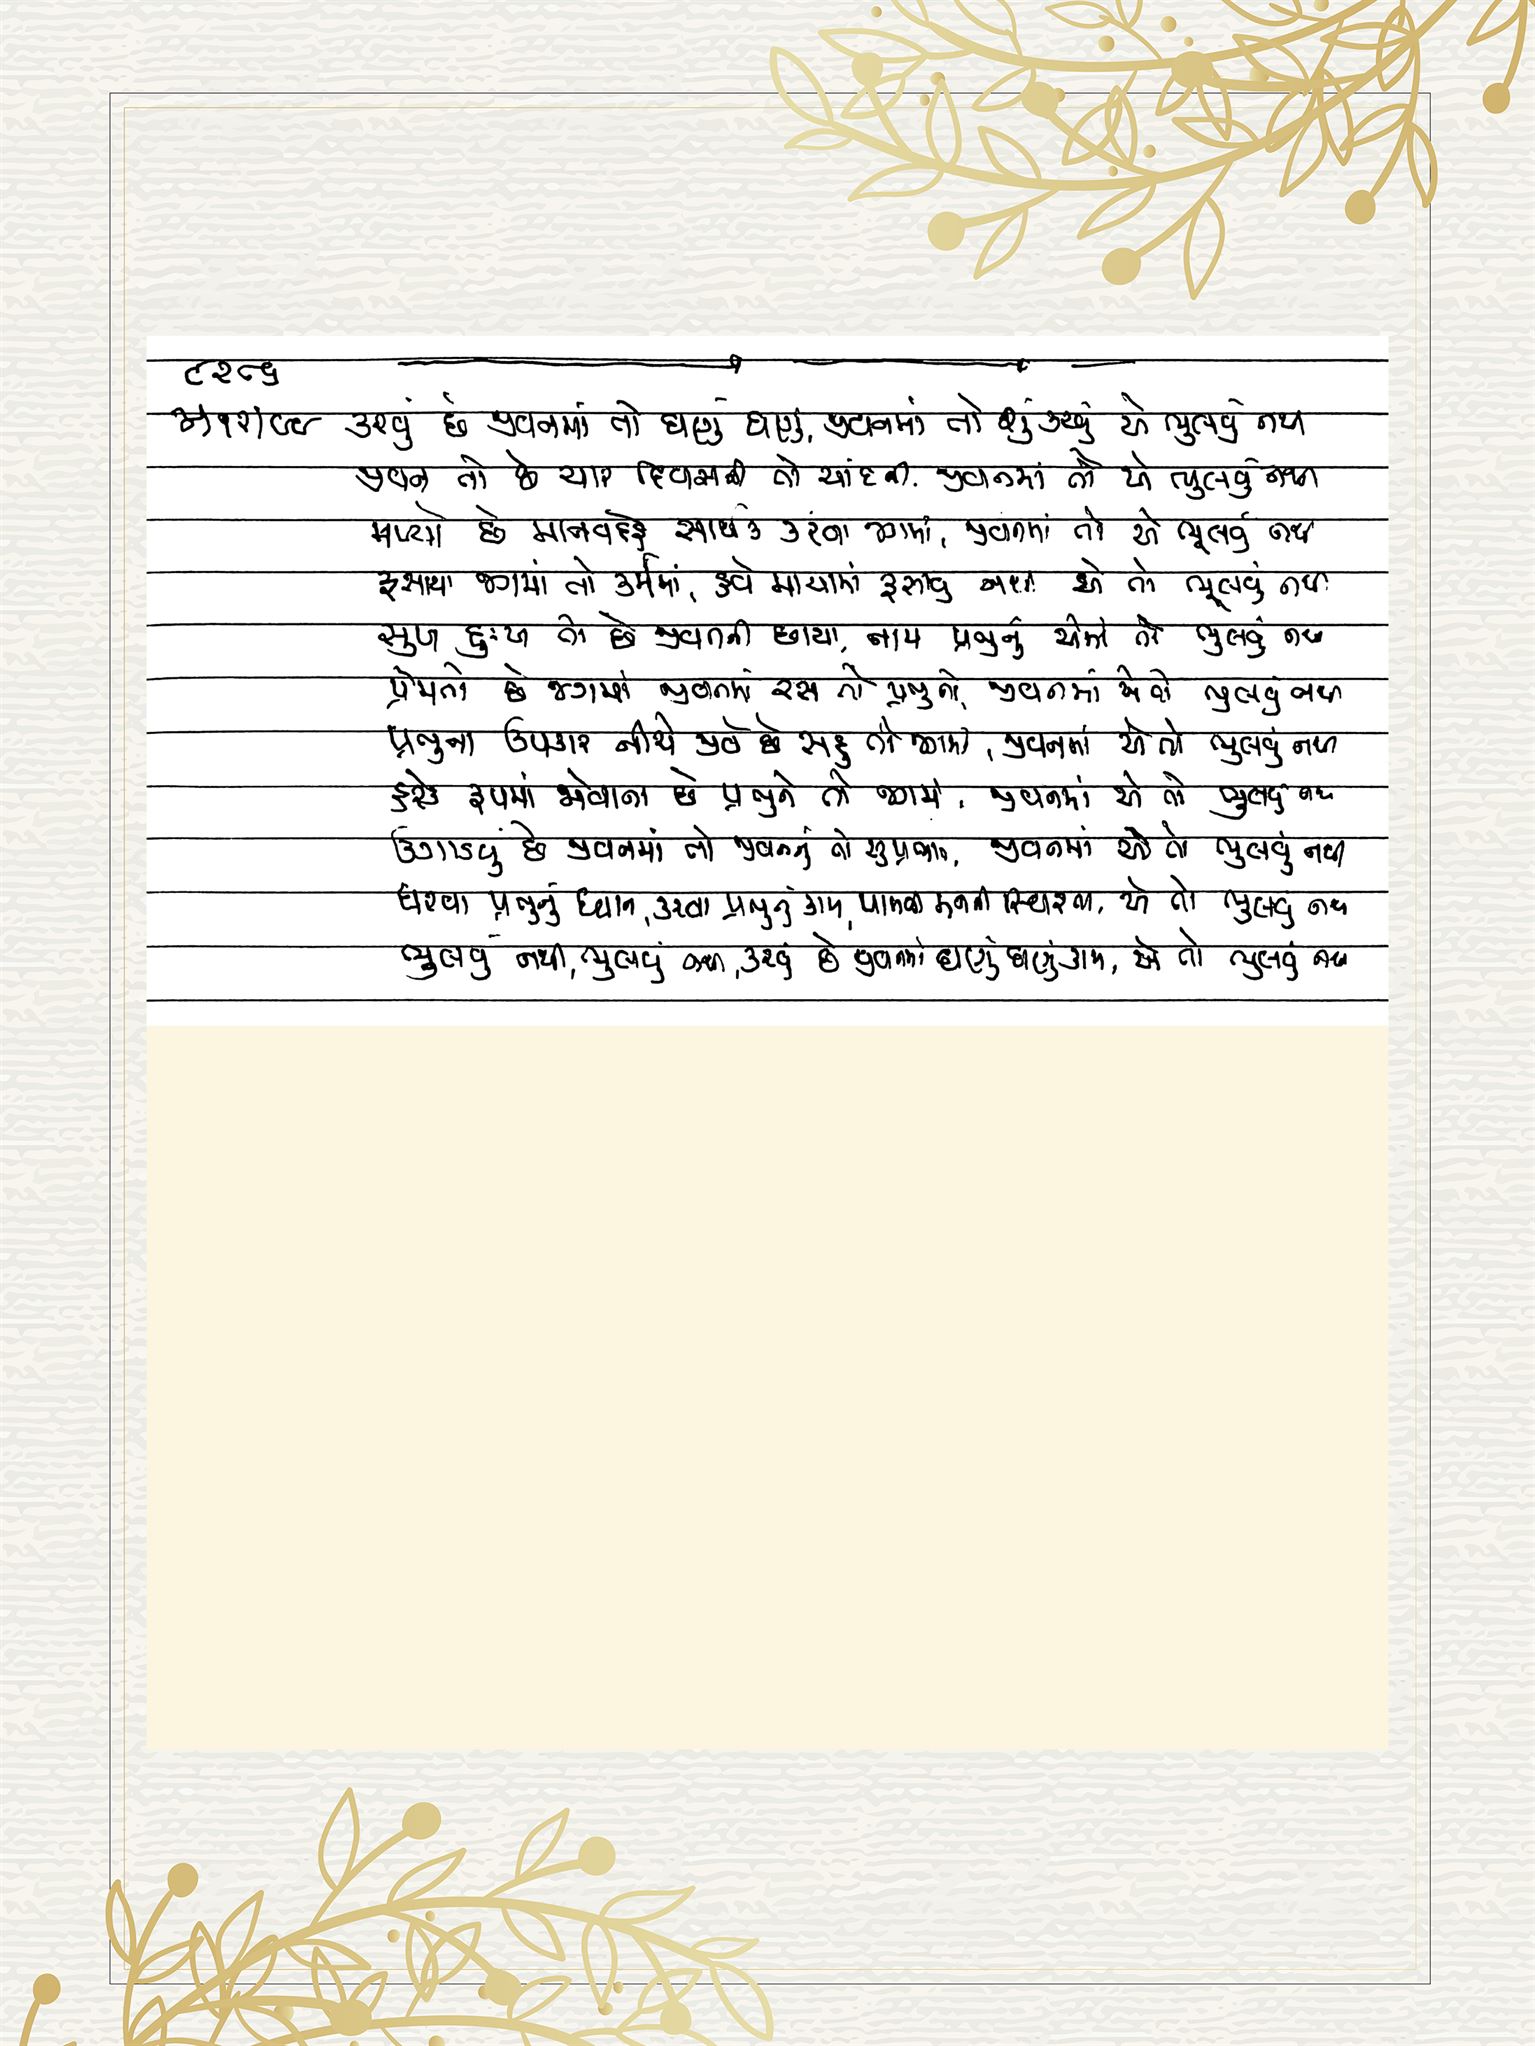 ૮૨૮૬
કરવું છે જીવનમાં તો ઘણું ઘણું, જીવનમાં તો શું કરવું એ ભુલવું નથી
જીવન તો છે ચાર દિવસની તો ચાંદની. જીવનમાં તો એ ભુલવું નથી
મળ્યો છે માનવદેહ સાર્થક કરવા જગમાં, જીવનમાં તો એ ભૂલવું નથી
ફસાયા જગમાં તો કર્મમાં, હવે માયામાં ફસાવુ નથી એ તો ભૂલવું નથી
સુખ દુઃખ તો છે જીવનની છાયા, નામ પ્રભુનું એમાં તો ભુલવું નથી
પ્રેમતો છે જગમાં જીવનમાં રસ તો પ્રભુનો, જીવનમાં એ તો ભુલવું નથી
પ્રભુના ઉપકાર નીચે જીવે છે સહુ તો જગમાં, જીવનમાં એ તો ભુલવું નથી
હરેક રૂપમાં જોવાના છે પ્રભુને તો જગમાં, જીવનમાં એ તો ભુલવું નથી
ઉગાડવું છે જીવનમાં તો જીવનનું તો સુપ્રભાત, જીવનમાં એ તો ભુલવું નથી
ધરવા પ્રભુનું ધ્યાન, કરવા પ્રભુનું કામ, પામવા મનની સ્થિરતા, એ તો ભુલવું નથી
ભુલવું નથી, ભુલવું નથી, કરવું છે જીવનમાં ઘણું ઘણું કામ, એ તો ભુલવું નથી